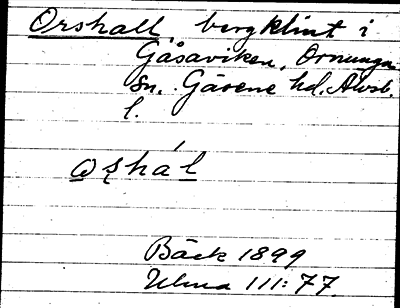 Orshall, bergklint i
Gåsaviken, Ornunga
sn. Gäsene hd. Älvsb.
l.
oʂhál
Bäck 1899
Ulma 111:77.